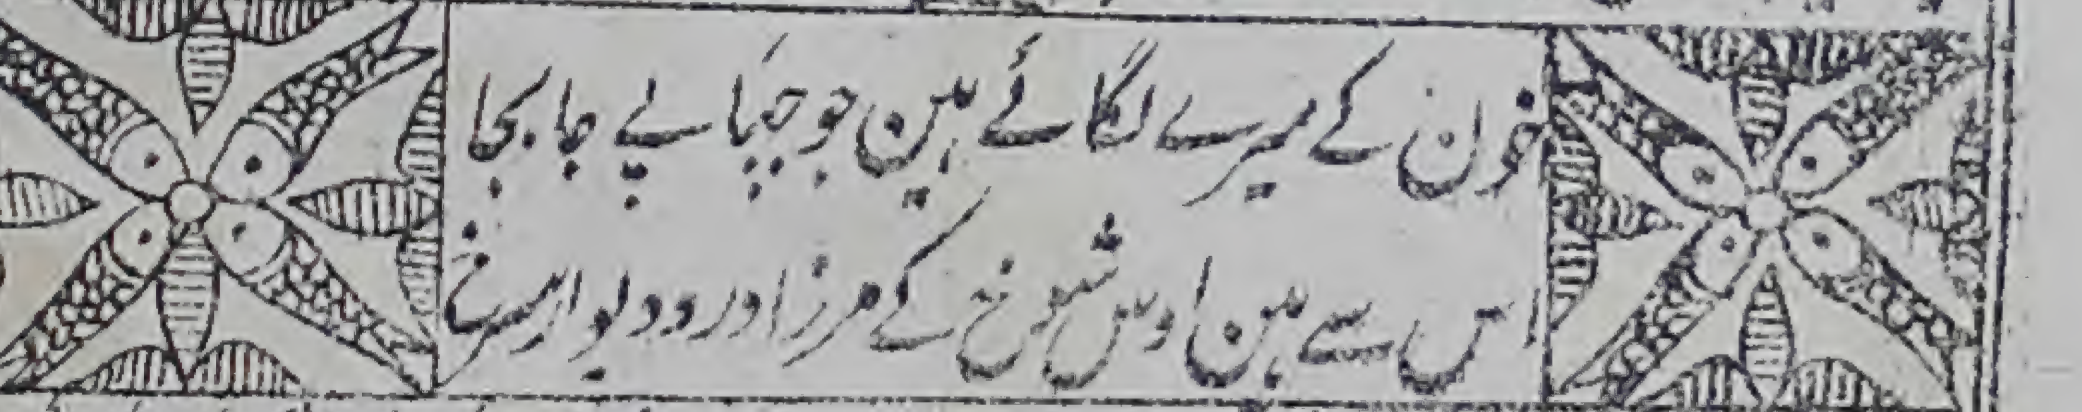 خون کے میرے لگائے ہین جو چھاپے جا بجا
اس سے ہین اوس شوخ کے مرزا در و دیوار سرخ